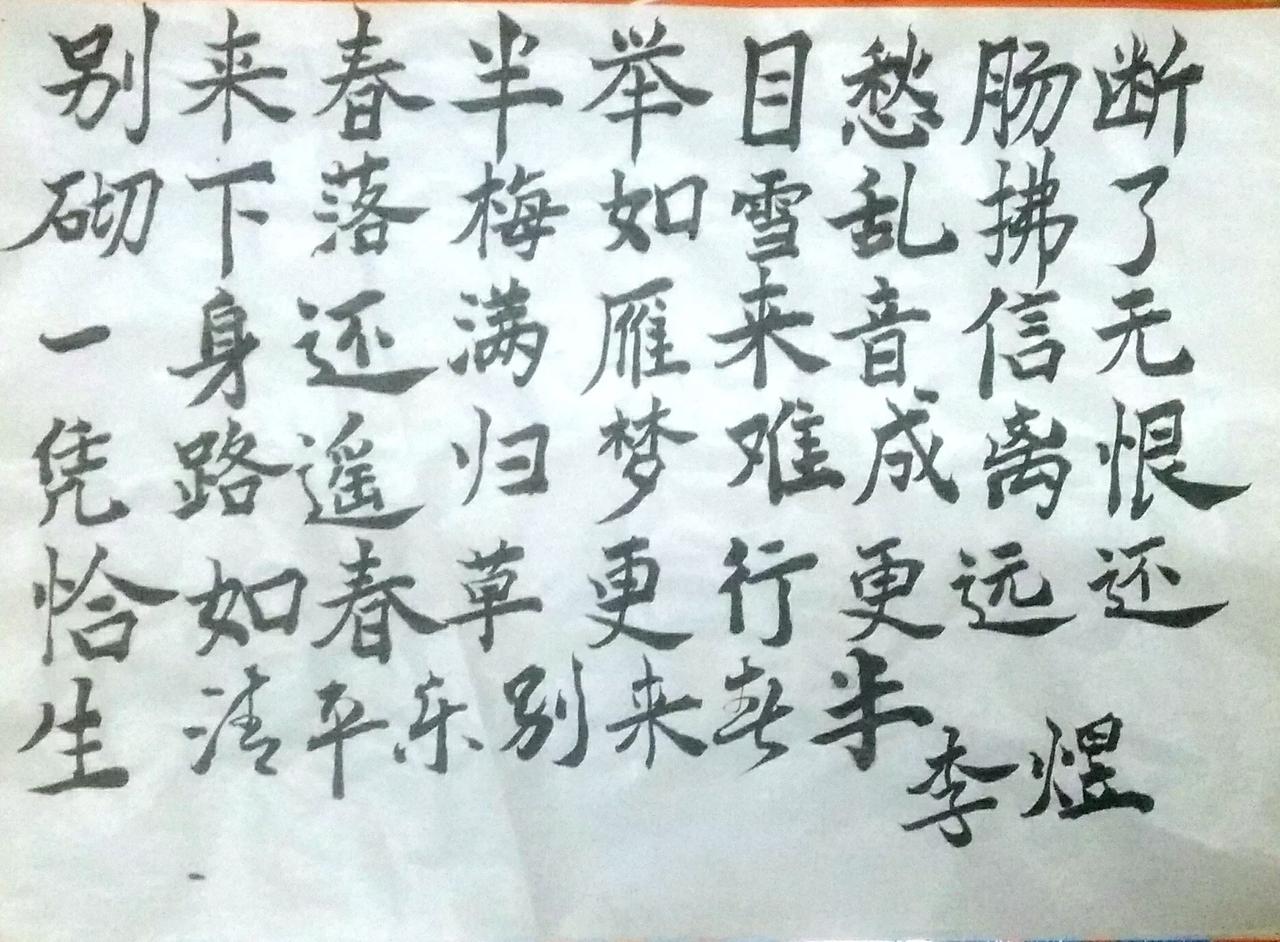 别来春半举目愁肠断
砌下落梅如雪乱拂了
一身还满雁来音信无
凭路遥归梦难成离恨
恰如春草更行更远还
生 清平乐别来春半
李煜